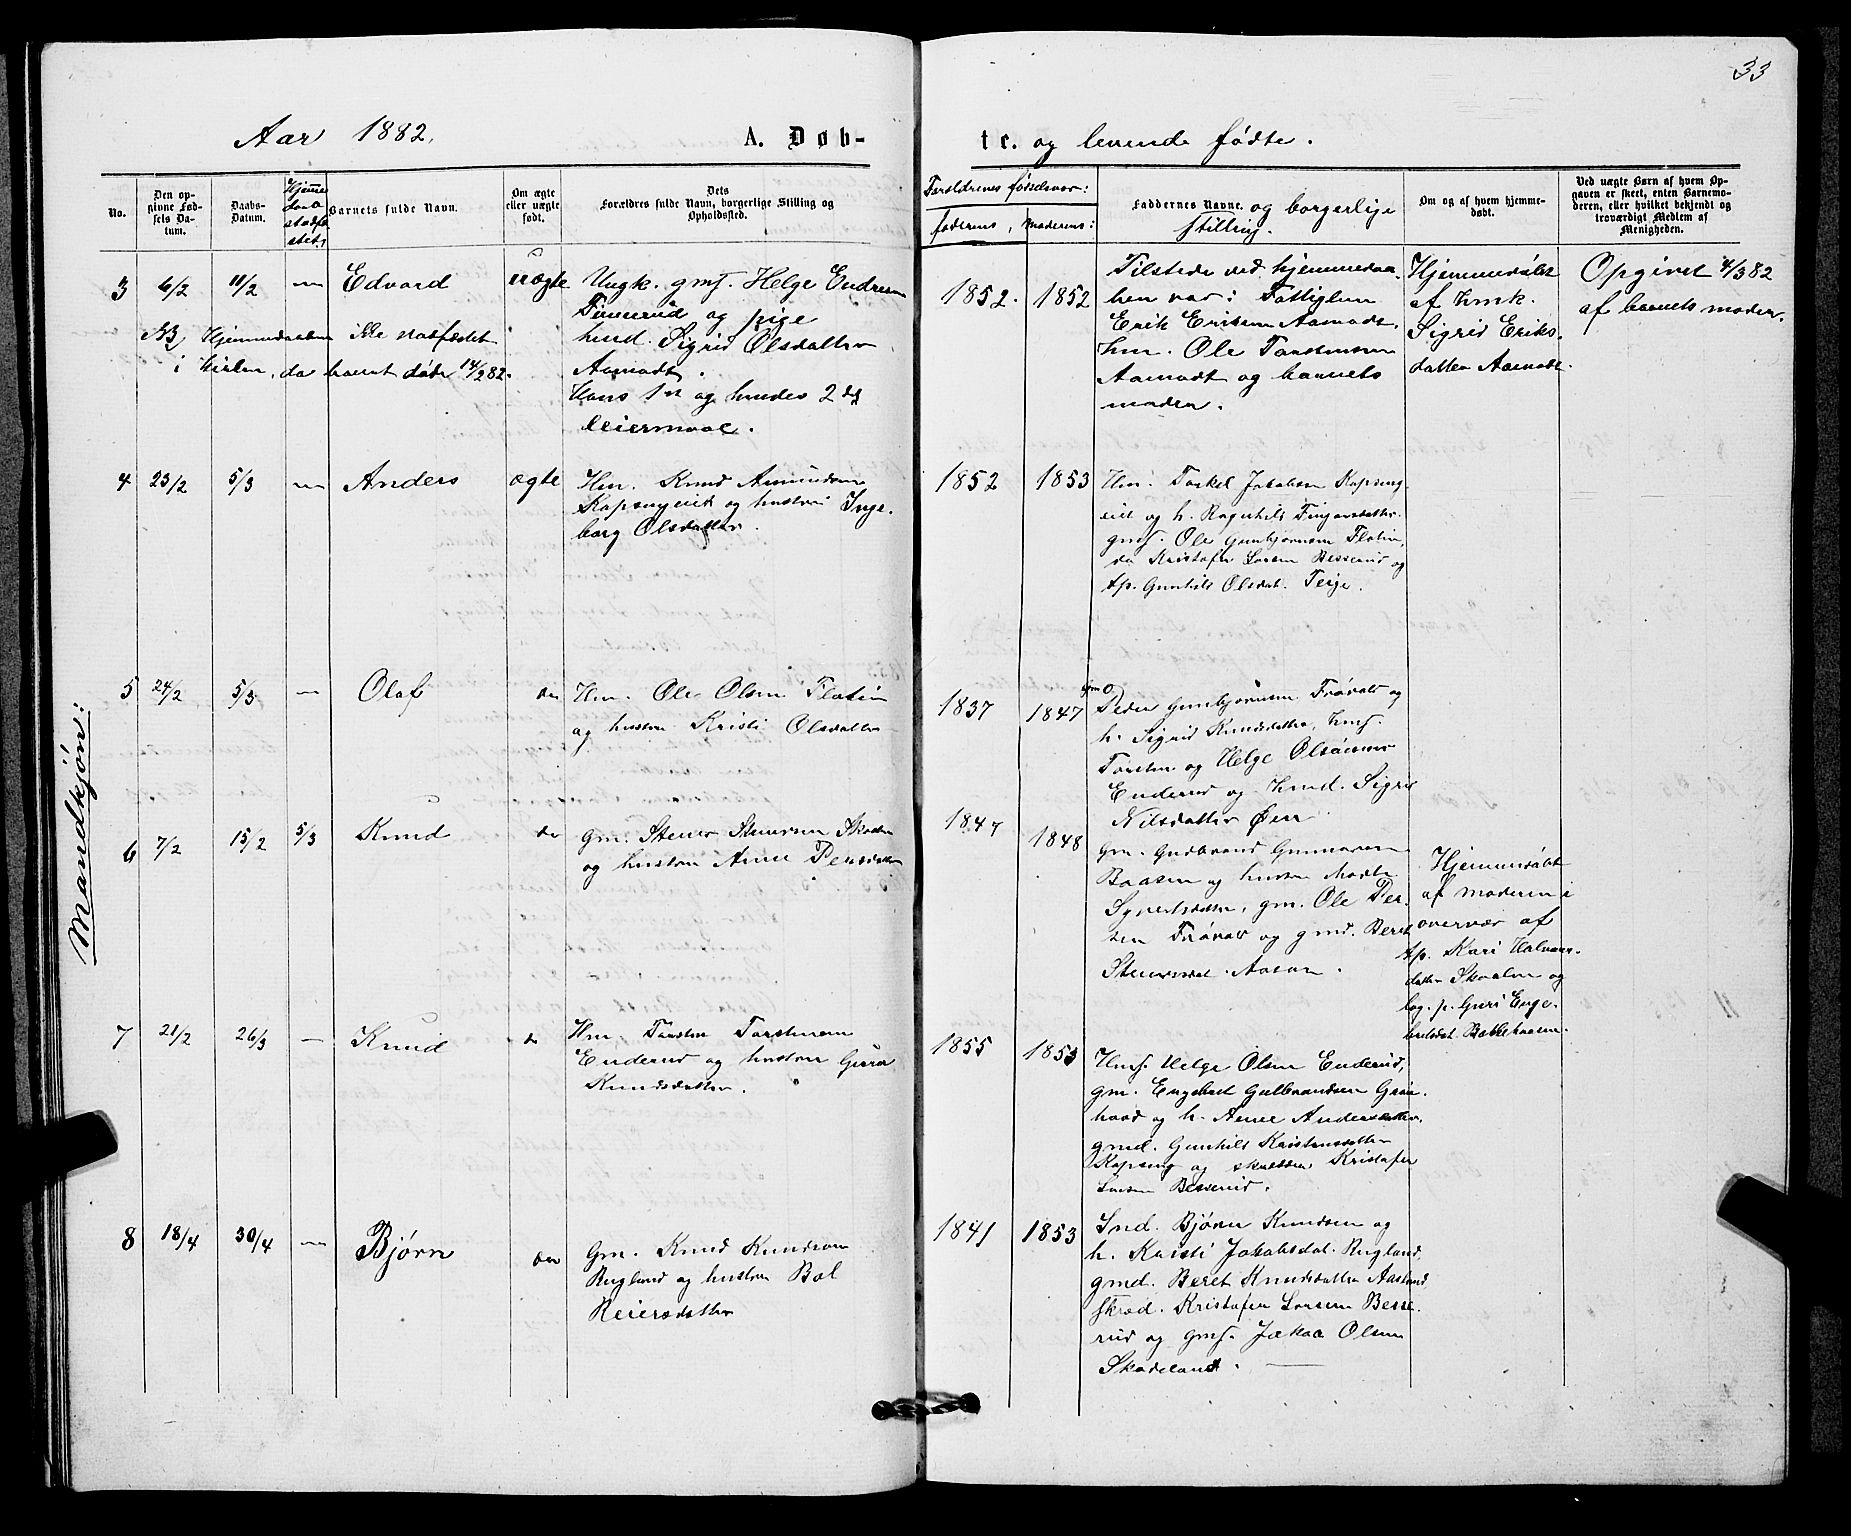 33
Aar 1882.
A. Døb-
te. og levende fødte.
No.
Den op-
givne Fød-
sels Da-
tum.
Daabs-
Datum.
Hjemme
daab
stadfæ
stet:
Barnets fulde Navn.
Om ægte
eller uægte
født.
Dets
Forældres fulde Navn, borgerlige Stilling og
Opholdssted.
Forældrenes fødselsaar:
faderens, moderens:
Faddernes Navne. og borgerlige
stilling.
Om og af hvem hjemme-
døbt.
Ved uægte Børn af hvem Op-
gaven er skeet, enten Barnemo-
deren, eller hvilket bekjendt og
troværdigt Medlem af
Menigheden.
Mandkjøn:
3 6/2 11/2 — Edvard uægte
Ungk. gmf. Helge Endresen
og pige
hmd. Sigrid Olsdatter
Aamodt.
Hans 1ste og hendes 2det
leiermaal.
NB Hjemmedaaben ikke stadfæstet
i kirken, da barnet døde 14/2 82.
1852. 1852
Tilstede ved hjemmedaa-
ben var: Fattiglem
Erik Eriksen Aamodt.
hm. Ole Torstensen
Aamodt og barnets
moder.
Hjemmedøbt
af hmk.
Sigrid Eriks-
datter Aamodt.
Opgivet 4/3 82
af barnets moder.
4 23/2 5/3 — Anders ægte
Hm. Knud Amundsen
Kopsengeiet og hustru Inge-
borg Olsdatter.
1852 1853
Hm. Torkel Jakobsen Kopseng-
eiet og h. Ragnhild Fingarsdatter
gmf. Ole Gunbjørnsen Flatin,
sk. Kristofer Larsen Besserud og
tp. Gunhild Olsdat. Teige.
5 24/2 5/3 — Olaf do
Hm. Ole Olsen Flatin
og hustru Kristi Olsdatter
1837 1847
gm Peder Gunbjørnsen Frøvold og
h. Sigrid Knudsdatter, hmf.
Torsten og Helge Olsønner
Enderud og hmd. Sigrid
Nilsdatter Øen
6 7/2 15/2 5/3 Knud do
gm. Stener Stenersen
og hustru Anne Persdatter
1847 1848
gm. Gudbrand Gunnarsen
Baasen og hustru Marte
Syvertsdatter, gm. Ole Per-
sen Frøvold og gmd. Beret
Stenersdat. Aasen.
Hjemmedøbt
af moderen i
overvær af
tp. Kari Halvors-
datter Skaalen og
bog. p. Guri Enge-
bretsdat. Bakkehaugen.
7 21/2 26/3 — Knud do
Hm. Torsten Torstensen
Enderud og hustru Guro
Knudsdatter.
1855 1853
Hmf. Helge Olsen Enderud,
gm. Engebret Gulbrandsen Grøn-
hovd og h. Anne Andersdatter,
gmd. Gunhild Kristensdatter
Kopseng og skrædder Kristofer
Larsen Besserud.
8 18/4 30/4 — Bjørn do
Gm. Knud Knudsen
Rugland og hustru Bol
Reiersdatter
1841 1853
Ind. Bjørn Knudsen og
h. Kristi Jakobsdat. Rugland,
gmd. Beret Knudsdatter Aasland,
skræd. Kristofer Larsen Besse-
rud og gmf. Jakob Olsen
Skadeland.